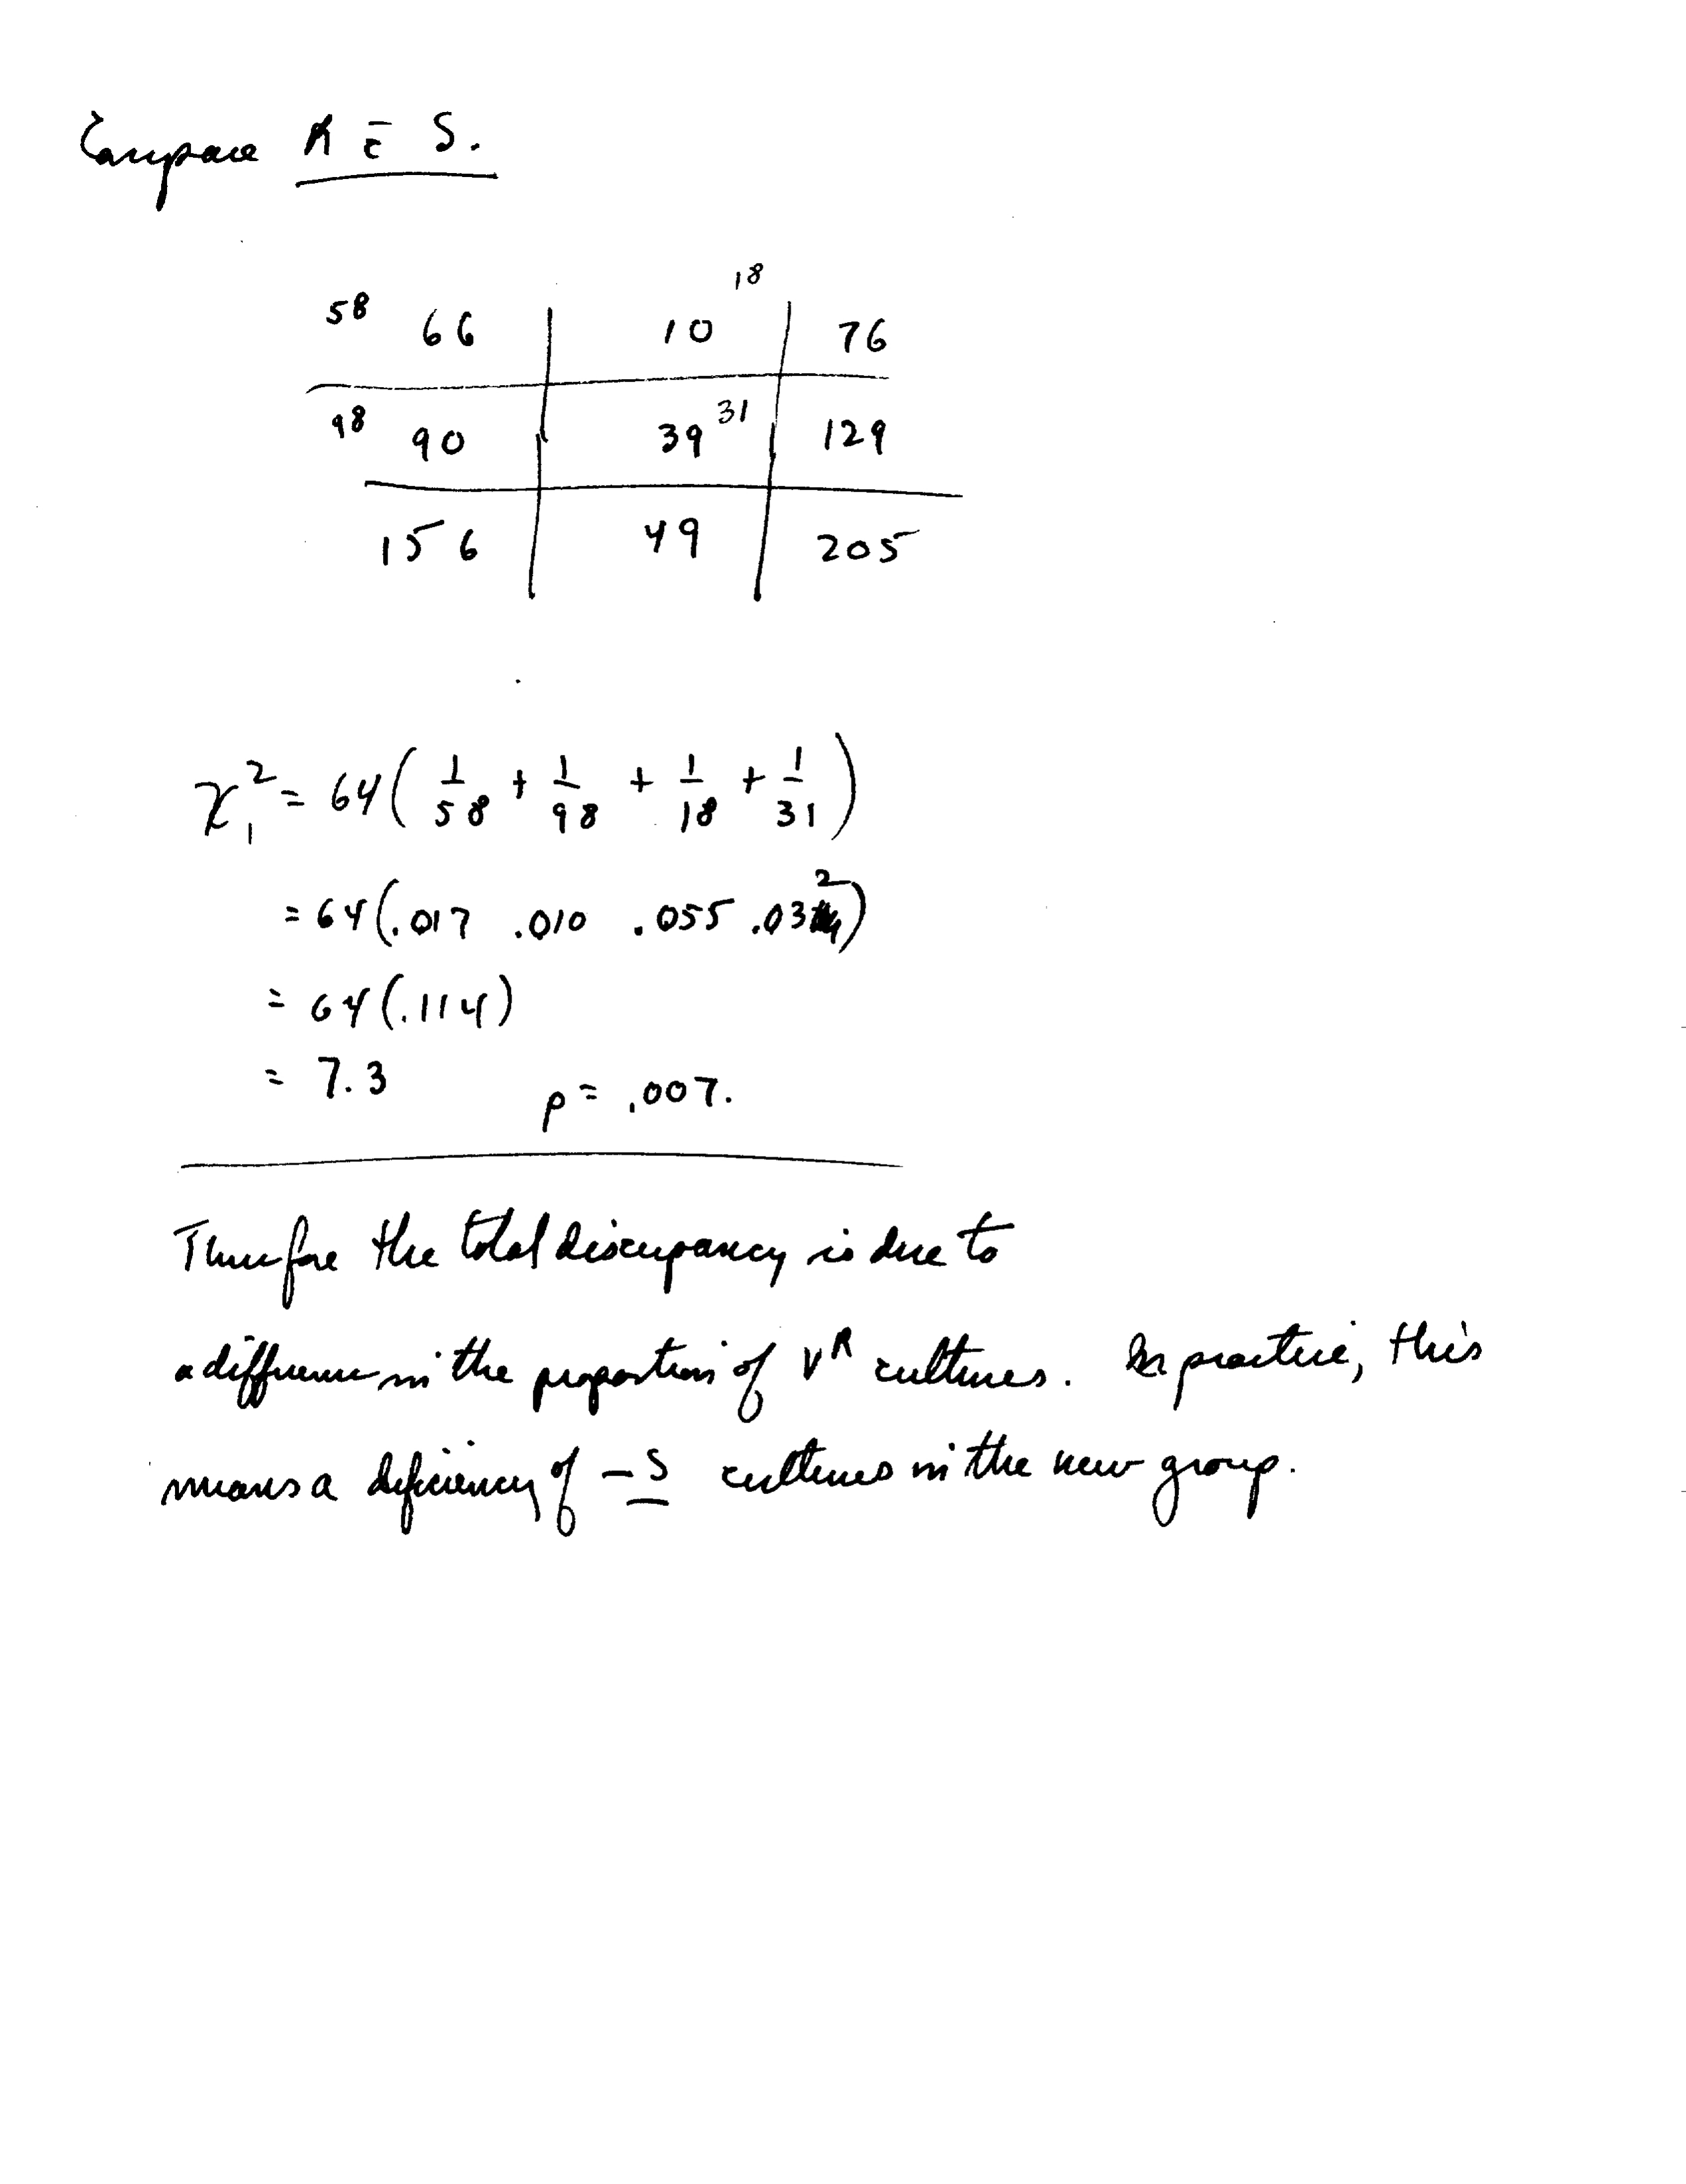 Compare R c̄ S.
58 66 10 18 76
98 90 39 31 129
156 49 205
χ₁² = 64( 1/58 + 1/98 + 1/18 + 1/31 )
= 64(.017 .010 .055 .032)
= 64(.114)
= 7.3 p = .007.
Therefore the total discrepancy is due to
a difference in the proportion of Vᴿ cultures. In practice, this
means a deficiency of –S cultures in the new group.